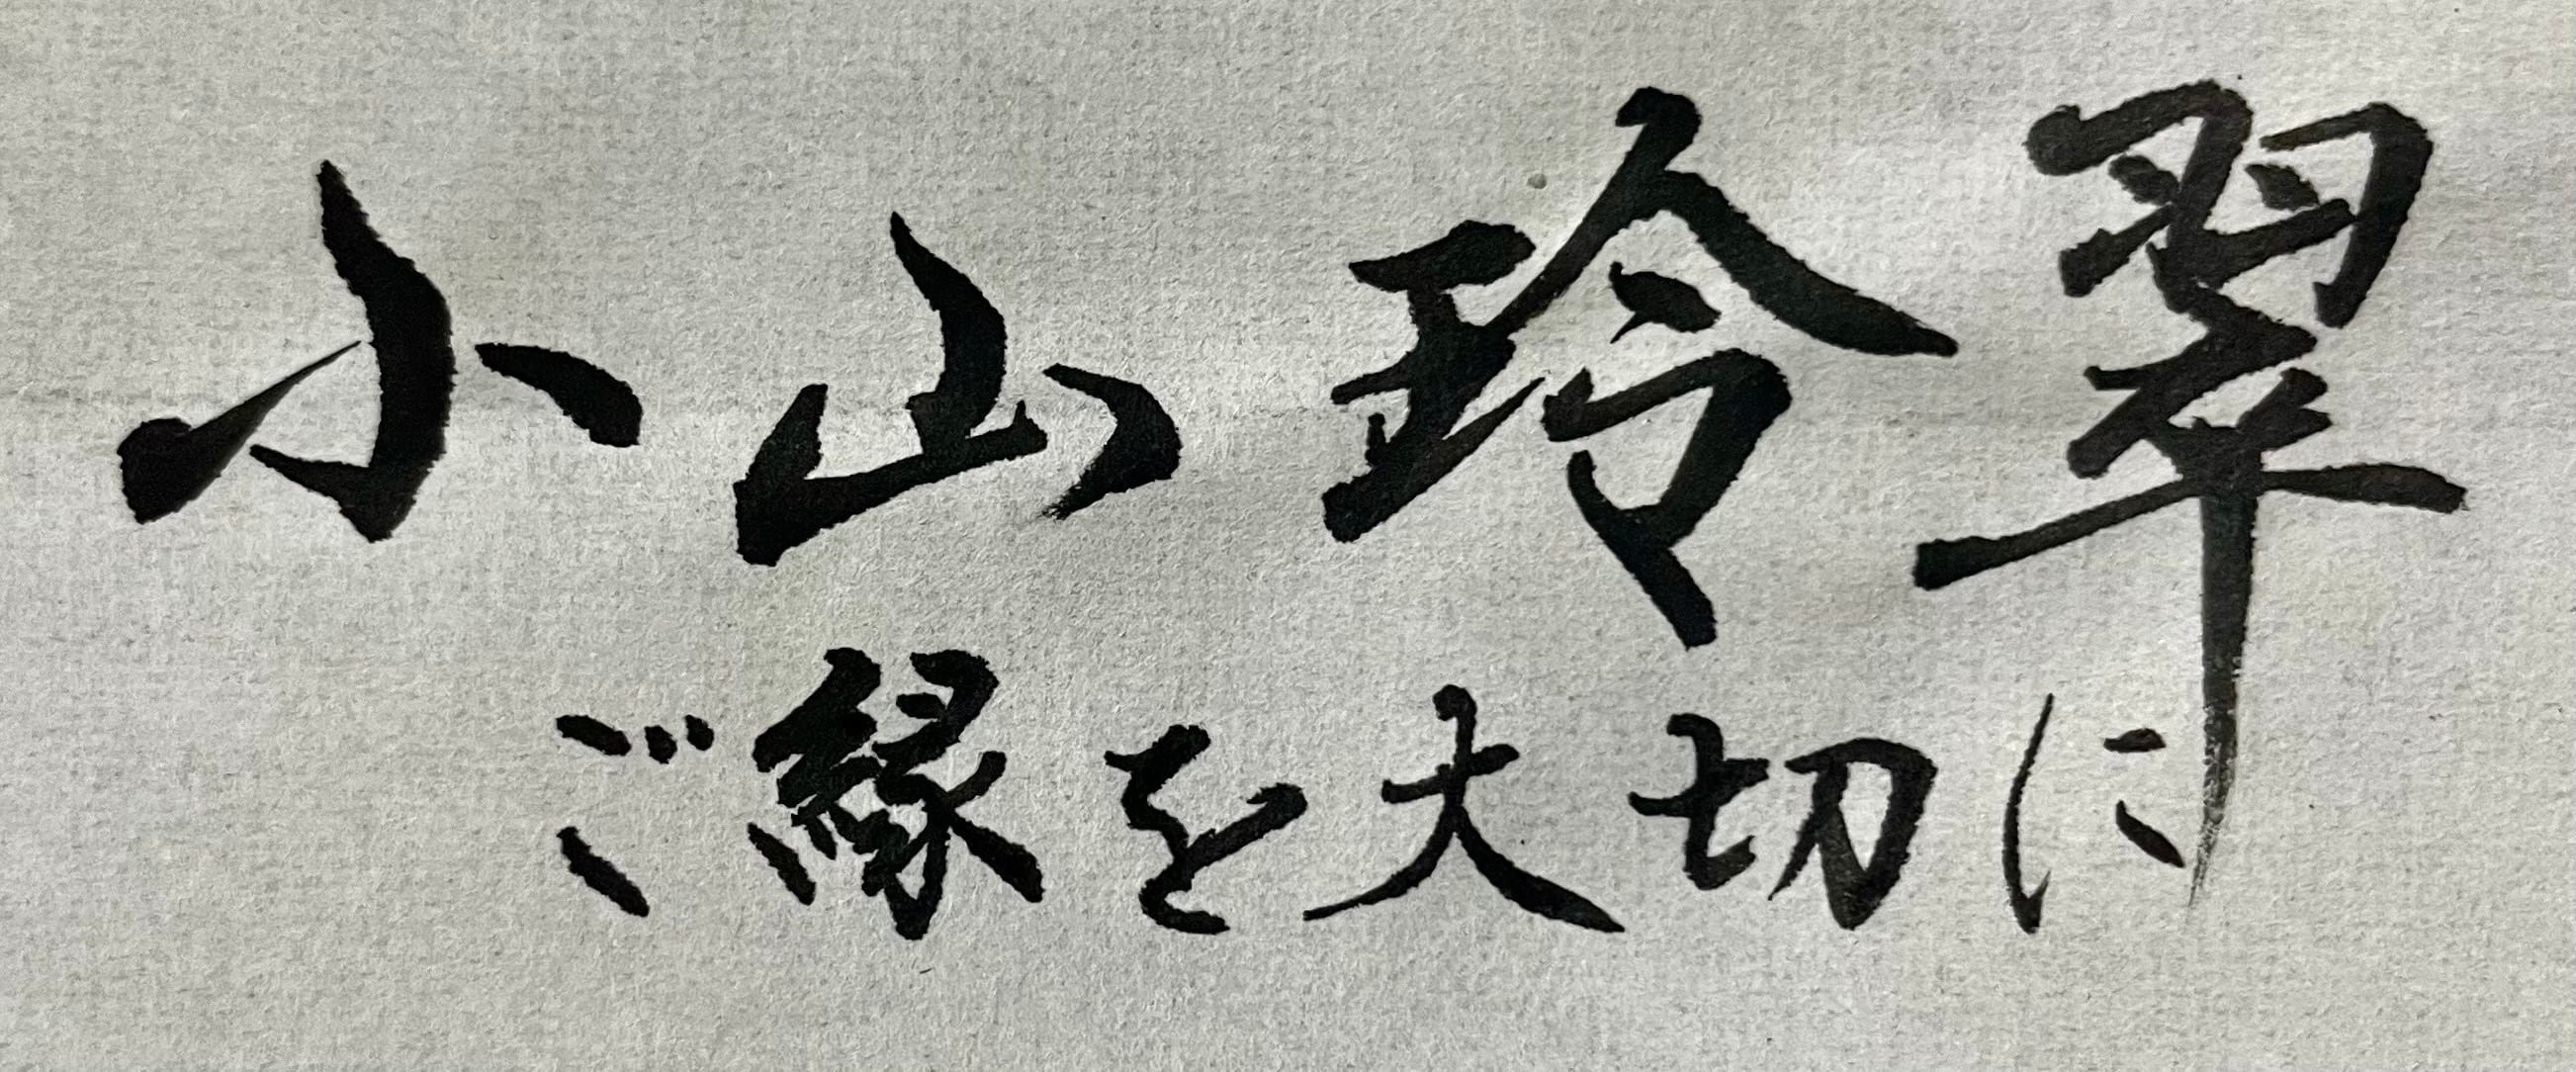 小山玲翠
ご縁を大切に